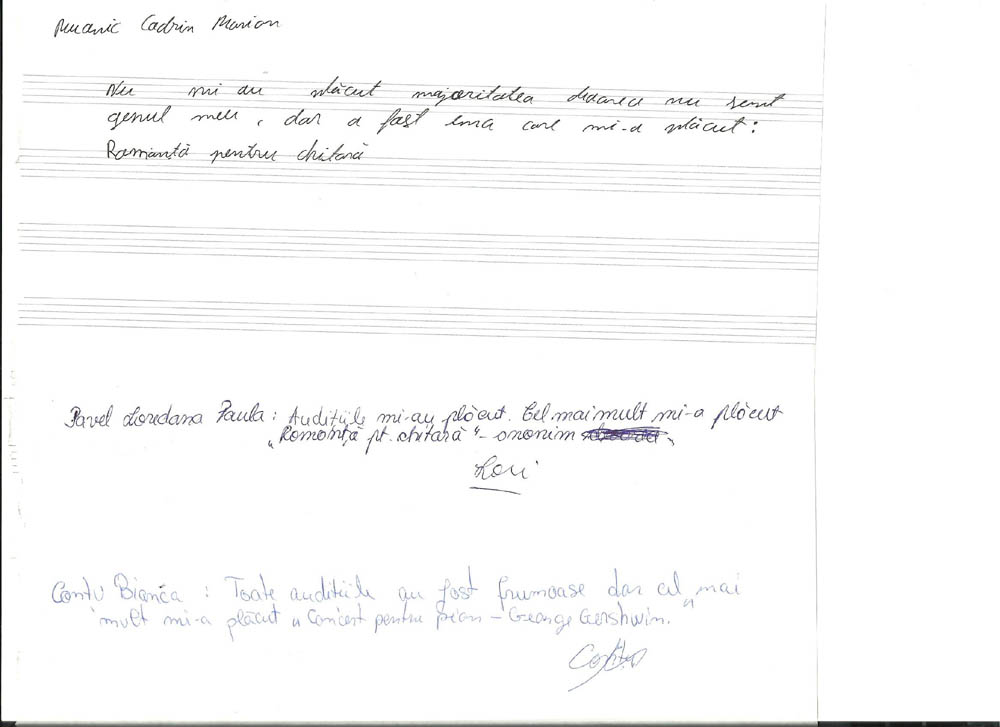 Cadrin Marian
Nu mi au plăcut majoritatea deoarece nu sunt
genul meu, dar a fost una care mi-a plăcut:
Romanță pentru chitară
Pavel Loredana Paula: Audițiile mi-au plăcut. Cel mai mult mi-a plăcut
„Romanță pt. chitară" - anonim
Lori
Contu Bianca : Toate audițiile au fost frumoase dar cel mai
mult mi-a plăcut „Concert pentru pian - George Gershwin.